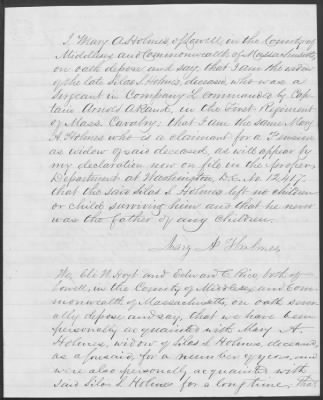 I Mary A. Holmes of Lowell, in the County of
Middlesex and Commonwealth of Massachusetts,
on oath depose and say, that I am the widow
of the late Silas S. Holmes, deceased, who was a
Sergeant in Company L commanded by Cap-
tain Arnold A. Rand, in the First Regiment
of Mass. Cavalry; that I am the same Mary
A. Holmes who is a claimant for a Pension
as widow of said deceased, as will appear by
my declaration now on file in the proper
Department at Washington, D.C. No 12,417.
that the said Silas S. Holmes left no children
or child surviving him and that he never
was the father of any children.
Mary A Holmes
We, W. Hoyt and Edward C. Rice, both of
Lowell, in the County of Middlesex and Com-
monwealth of Massachusetts, on oath sever-
ally depose and say, that we have been
personally acquainted with Mary A.
Holmes, widow of Silas S. Holmes, deceased,
as aforesaid, for a number of years, and
were also personally acquainted with
said Silas S. Holmes for a long time; that